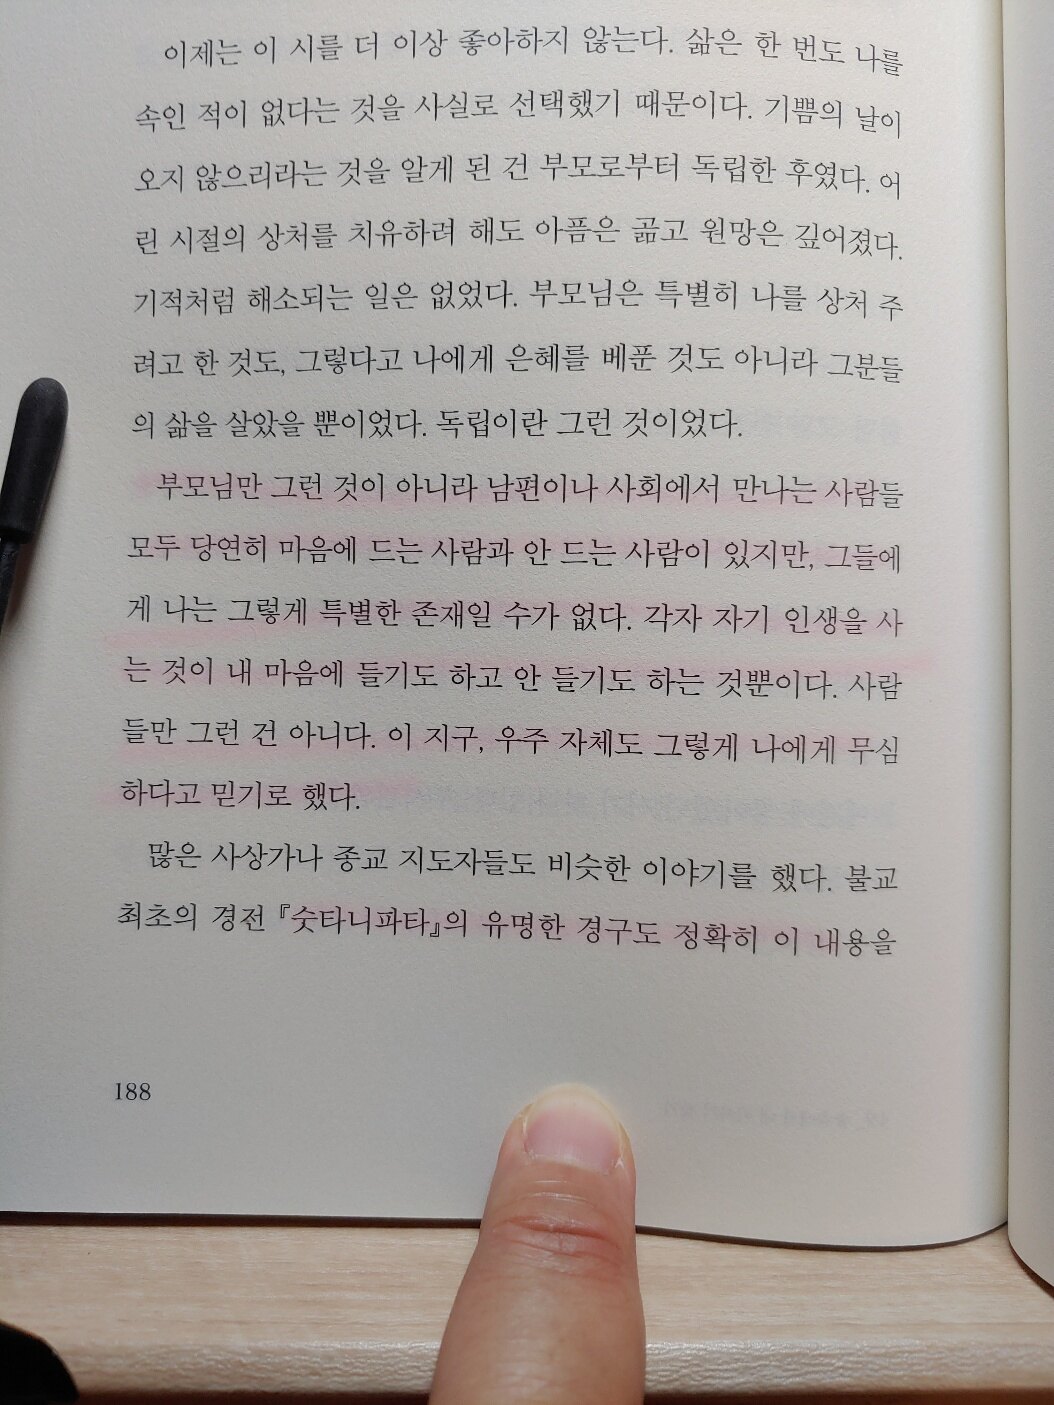 이제는 이 시를 더 이상 좋아하지 않는다. 삶은 한 번도 나를
속인 적이 없다는 것을 사실로 선택했기 때문이다. 기쁨의 날이
오지 않으리라는 것을 알게 된 건 부모로부터 독립한 후였다. 어
린 시절의 상처를 치유하려 해도 아픔은 곪고 원망은 깊어졌다.
기적처럼 해소되는 일은 없었다. 부모님은 특별히 나를 상처 주
려고 한 것도, 그렇다고 나에게 은혜를 베푼 것도 아니라 그분들
의 삶을 살았을 뿐이었다. 독립이란 그런 것이었다.
부모님만 그런 것이 아니라 남편이나 사회에서 만나는 사람들
모두 당연히 마음에 드는 사람과 안 드는 사람이 있지만, 그들에
게 나는 그렇게 특별한 존재일 수가 없다. 각자 자기 인생을 사
는 것이 내 마음에 들기도 하고 안 들기도 하는 것뿐이다. 사람
들만 그런 건 아니다. 이 지구, 우주 자체도 그렇게 나에게 무심
하다고 믿기로 했다.
많은 사상가나 종교 지도자들도 비슷한 이야기를 했다. 불교
최초의 경전 『숫타니파타』의 유명한 경구도 정확히 이 내용을
188